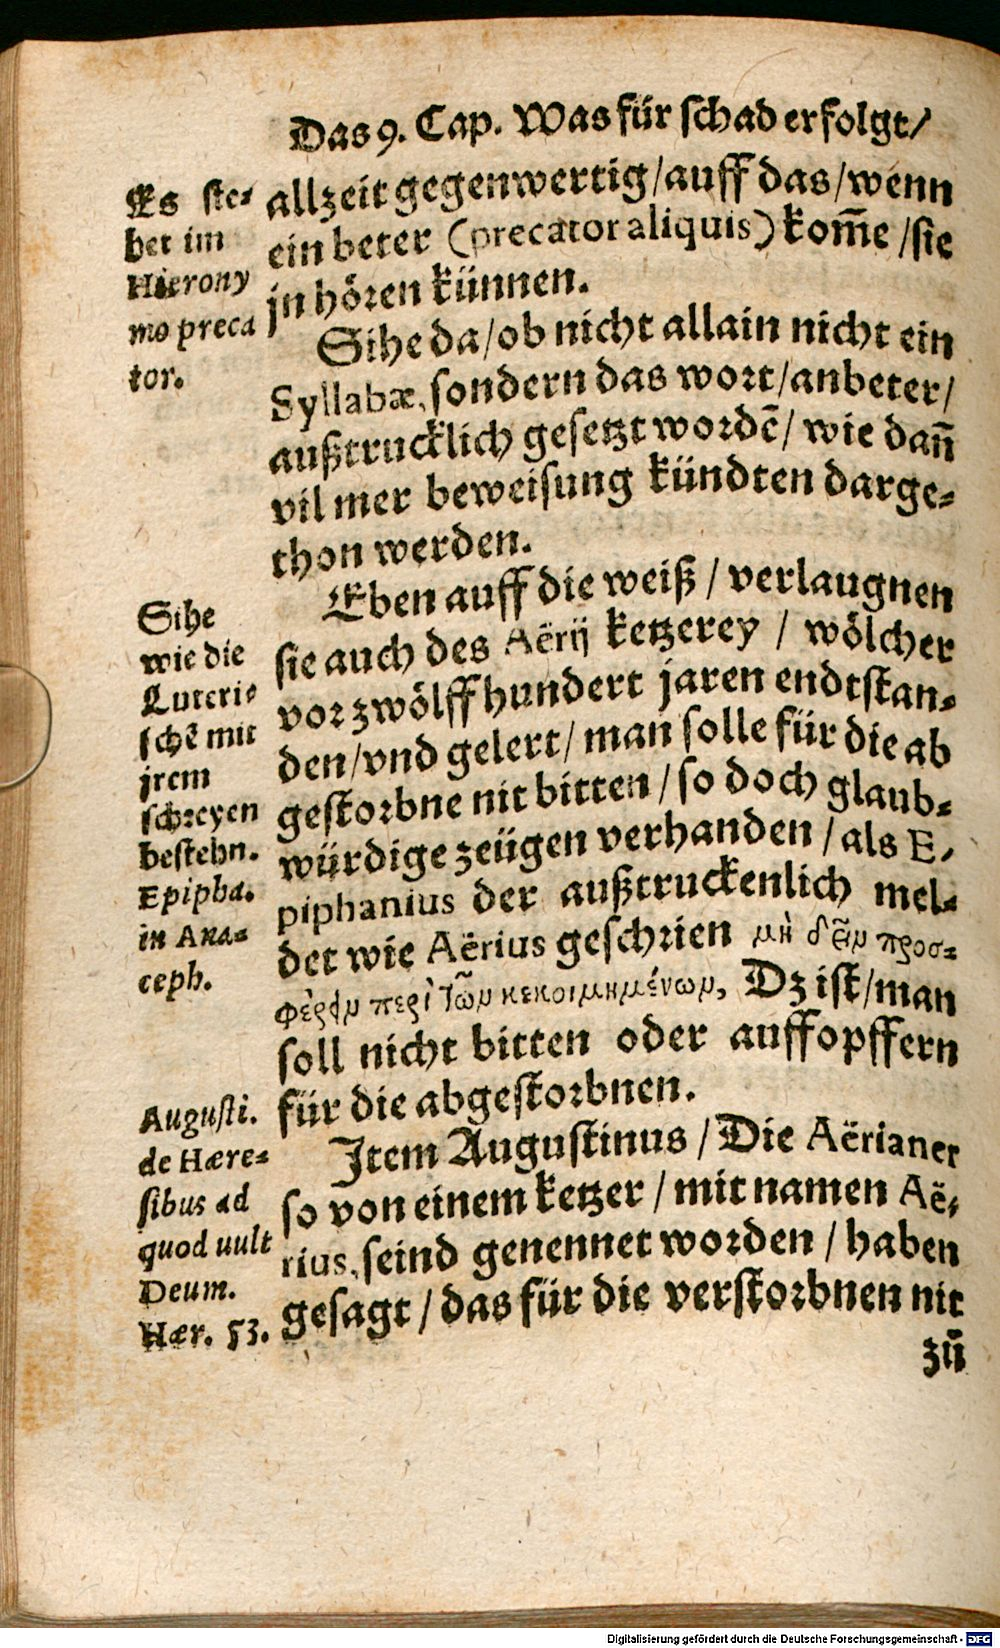 Das 9. Cap. Was für schad erfolgt/
Es ste-
het im
Hierony
mo preca
tor.
allzeit gegenwertig/auff das/wenn
ein beter (precator aliquis) kom̃e /sie
jn hören künnen.
Sihe da/ob nicht allain nicht ein
Syllabæ, sondern das wort/anbeter/
außtrucklich gesetzt wordẽ/ wie dañ
vil mer beweisung kündten darge-
thon werden.
Sihe
wie die
Luteri-
schẽ mit
jrem
schreyen
bestehn.
Epipha.
in Ana-
ceph.
Eben auff die weiß / verlaugnen
sie auch des Aërij ketzerey / wölcher
vor zwölff hundert jaren endtstan-
den/vnd gelert/ man solle für die ab
gestorbne nit bitten / so doch glaub-
würdige zeügen verhanden / als E-
piphanius der außtruckenlich mel-
det wie Aërius geschrien μὴ δεῖν προσ-
φέρειν περὶ τῶν κεκοιμημένων, Dz ist/man
soll nicht bitten oder auffopffern
für die abgestorbnen.
Augusti.
de Hære-
sibus ad
quod uult
Deum.
Hær. 53.
Item Augustinus / Die Aërianer
so von einem ketzer / mit namen Aë-
rius, seind genennet worden / haben
gesagt / das für die verstorbnen nit
zů
Digitalisierung gefördert durch die Deutsche Forschungsgemeinschaft - DFG